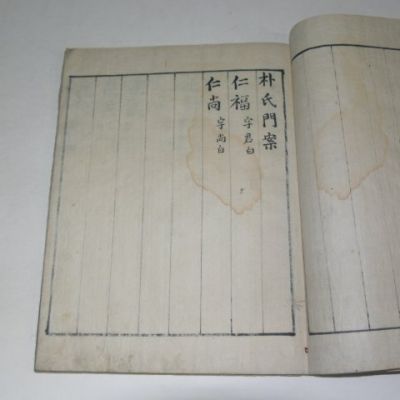 朴氏門案
仁福 字君白
仁尚 字尚白